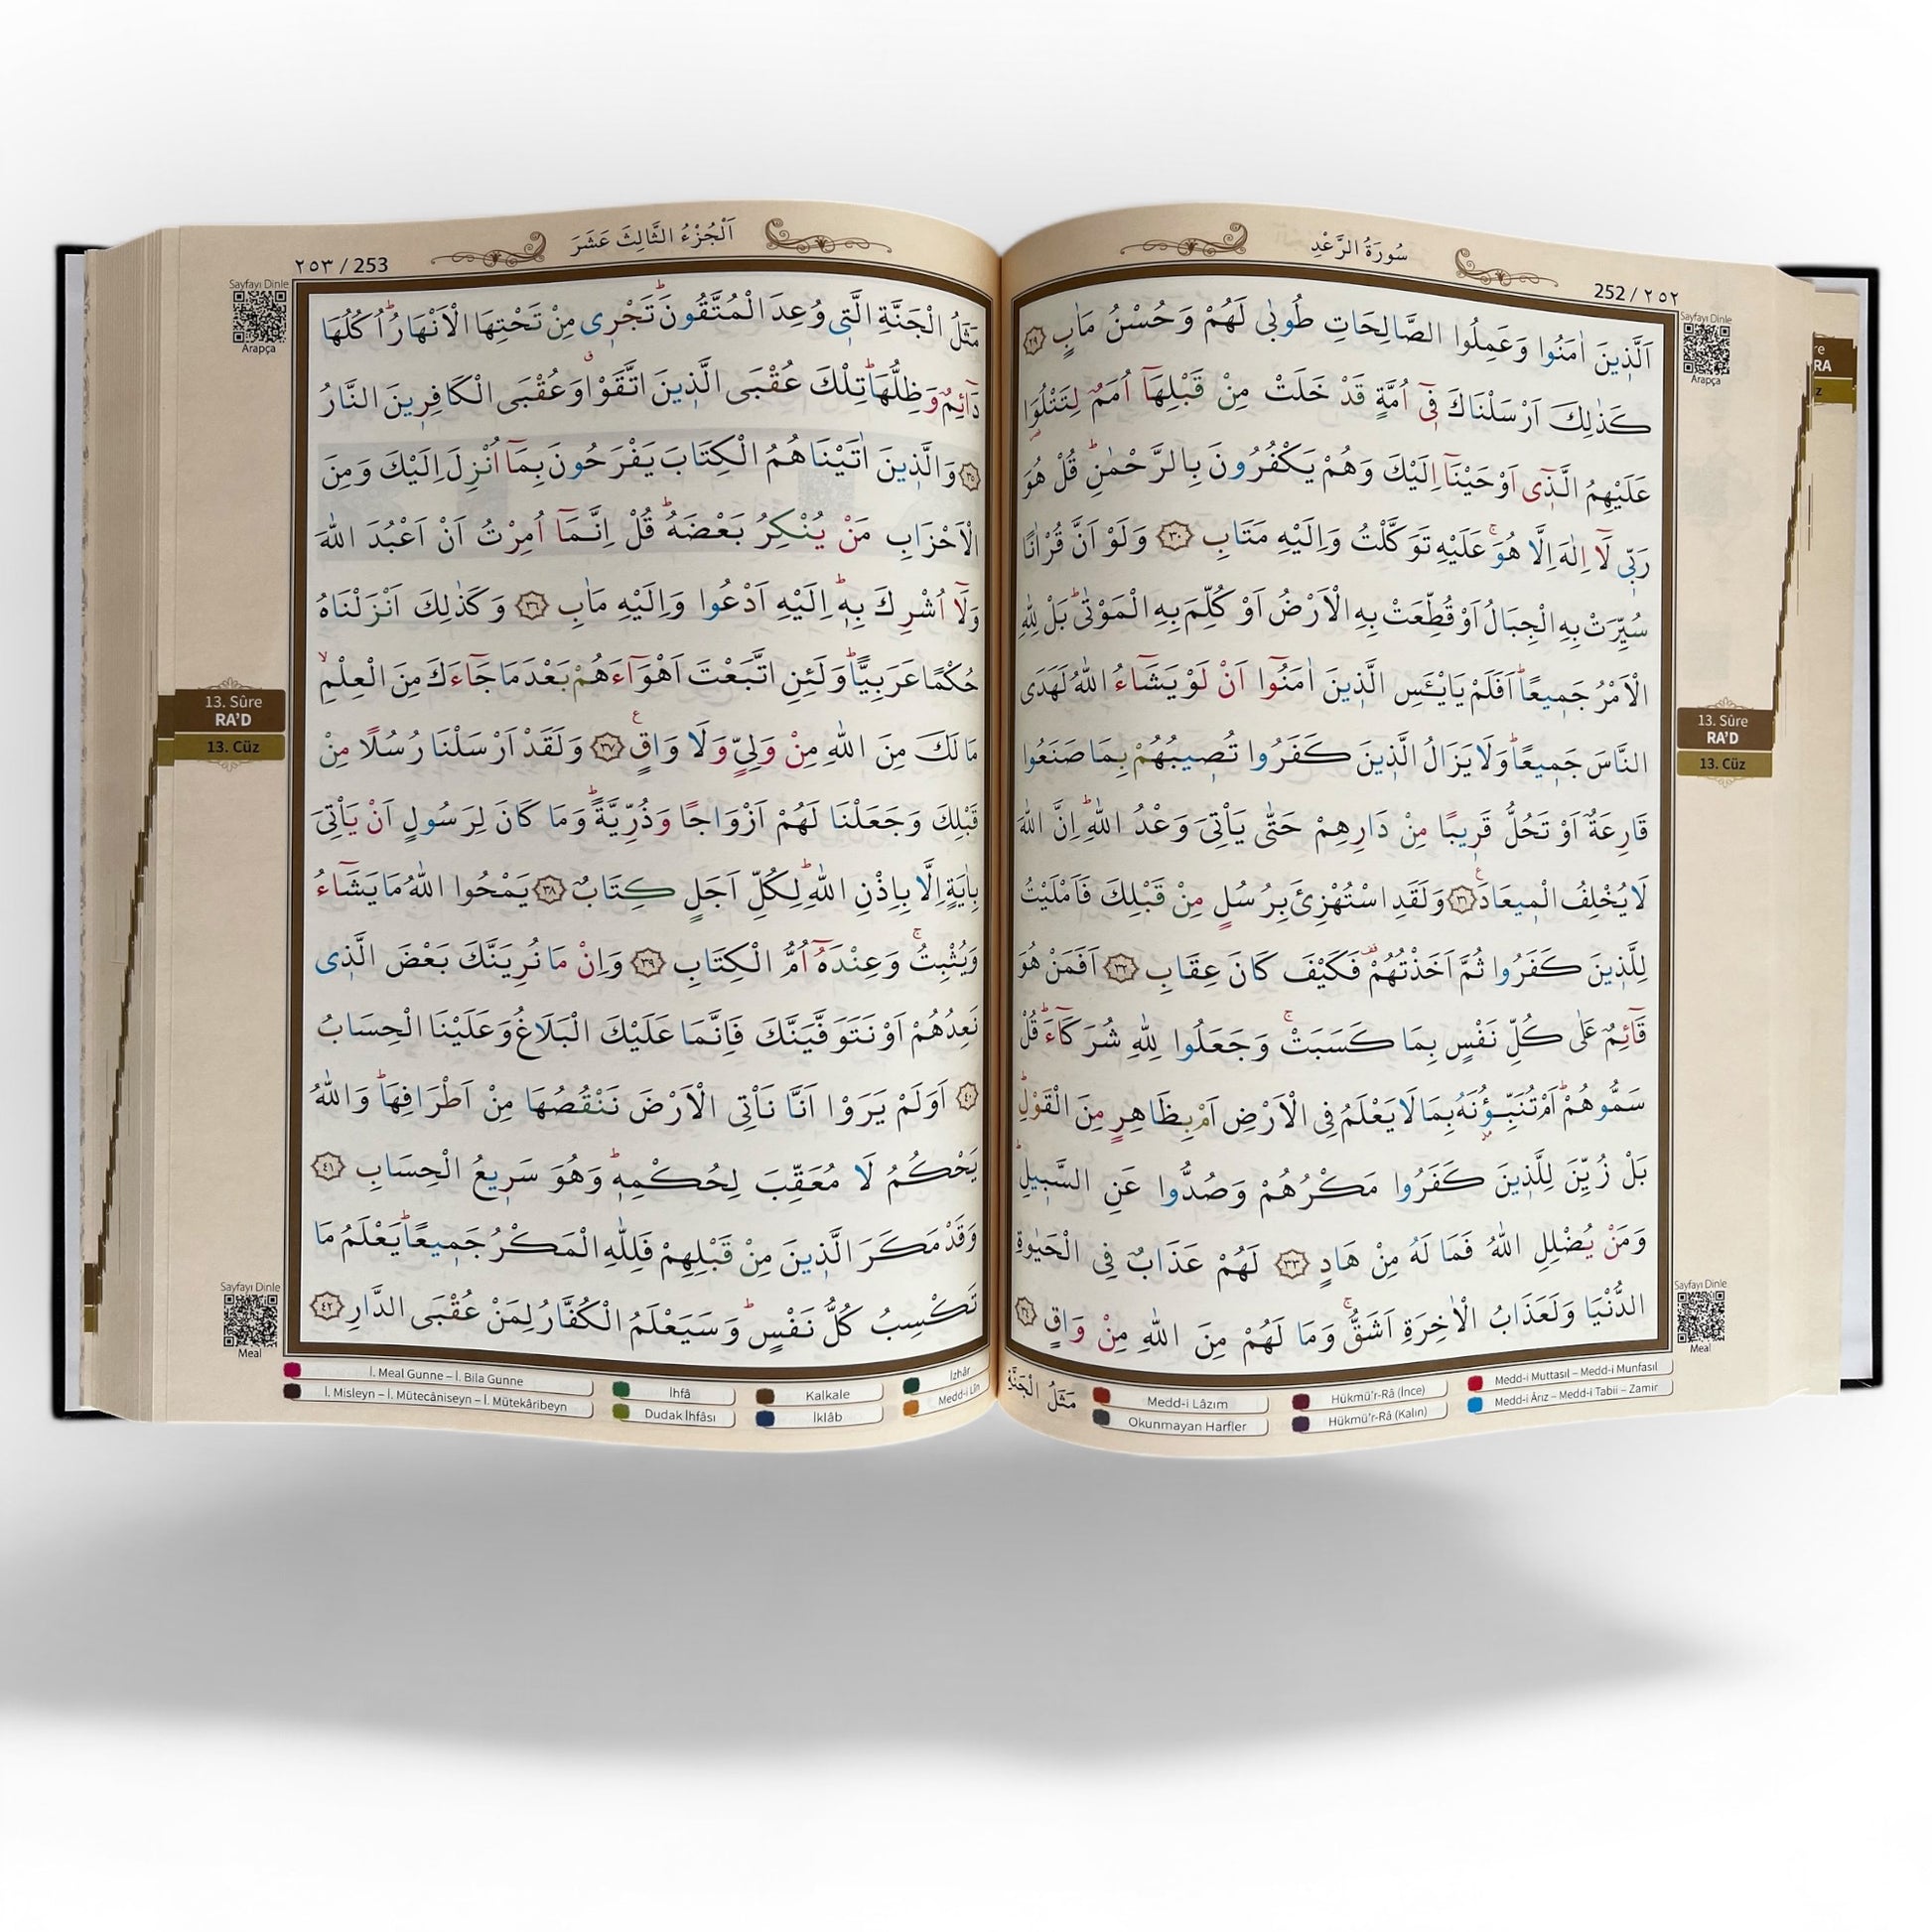 سُورَةُ الرَّعْدِ
252 / ٢٥٢
اَلَّذٖينَ اٰمَنُوا وَعَمِلُوا الصَّالِحَاتِ طُوبٰى لَهُمْ وَحُسْنُ مَاٰبٍ ﴿٢٩﴾
كَذٰلِكَ اَرْسَلْنَاكَ فٖٓى اُمَّةٍ قَدْ خَلَتْ مِنْ قَبْلِهَٓا اُمَمٌ لِتَتْلُوَا
عَلَيْهِمُ الَّذٖٓى اَوْحَيْنَٓا اِلَيْكَ وَهُمْ يَكْفُرُونَ بِالرَّحْمٰنِؕ قُلْ هُوَ
رَبّٖى لَٓا اِلٰهَ اِلَّا هُوَۚ عَلَيْهِ تَوَكَّلْتُ وَاِلَيْهِ مَتَابِ ﴿٣٠﴾ وَلَوْ اَنَّ قُرْاٰنًا
سُيِّرَتْ بِهِ الْجِبَالُ اَوْ قُطِّعَتْ بِهِ الْاَرْضُ اَوْ كُلِّمَ بِهِ الْمَوْتٰىؕ بَلْ لِلّٰهِ
الْاَمْرُ جَمٖيعًاؕ اَفَلَمْ يَايْـَٔسِ الَّذٖينَ اٰمَنُٓوا اَنْ لَوْ يَشَٓاءُ اللّٰهُ لَهَدَى
النَّاسَ جَمٖيعًاؕ وَلَا يَزَالُ الَّذٖينَ كَفَرُوا تُصٖيبُهُمْ بِمَا صَنَعُوا
قَارِعَةٌ اَوْ تَحُلُّ قَرٖيبًا مِنْ دَارِهِمْ حَتّٰى يَاْتِىَ وَعْدُ اللّٰهِؕ اِنَّ اللّٰهَ
لَا يُخْلِفُ الْمٖيعَادَ ﴿٣١﴾ وَلَقَدِ اسْتُهْزِئَ بِرُسُلٍ مِنْ قَبْلِكَ فَاَمْلَيْتُ
لِلَّذٖينَ كَفَرُوا ثُمَّ اَخَذْتُهُمْ فَكَيْفَ كَانَ عِقَابِ ﴿٣٢﴾ اَفَمَنْ هُوَ
قَٓائِمٌ عَلٰى كُلِّ نَفْسٍ بِمَا كَسَبَتْۚ وَجَعَلُوا لِلّٰهِ شُرَكَٓاءَؕ قُلْ
سَمُّوهُمْؕ اَمْ تُنَبِّؤُ۫نَهُ بِمَا لَا يَعْلَمُ فِى الْاَرْضِ اَمْ بِظَاهِرٍ مِنَ الْقَوْلِؕ
بَلْ زُيِّنَ لِلَّذٖينَ كَفَرُوا مَكْرُهُمْ وَصُدُّوا عَنِ السَّبٖيلِؕ
وَمَنْ يُضْلِلِ اللّٰهُ فَمَا لَهُ مِنْ هَادٍ ﴿٣٣﴾ لَهُمْ عَذَابٌ فِى الْحَيٰوةِ
الدُّنْيَا وَلَعَذَابُ الْاٰخِرَةِ اَشَقُّۚ وَمَا لَهُمْ مِنَ اللّٰهِ مِنْ وَاقٍ ﴿٣٤﴾
مَثَلُ الْجَنَّةِ
Medd-i Lâzım
Hükmü'r-Râ (İnce)
Medd-i Muttasıl – Medd-i Munfasıl
Okunmayan Harfler
Hükmü'r-Râ (Kalın)
Medd-i Ârız – Medd-i Tabii – Zamir
Sayfayı Dinle
Arapça
RA
13. Sûre
RA'D
13. Cüz
Sayfayı Dinle
Meal
اَلْجُزْءُ الثَّالِثَ عَشَرَ
٢٥٣ / 253
مَثَلُ الْجَنَّةِ الَّتٖى وُعِدَ الْمُتَّقُونَؕ تَجْرٖى مِنْ تَحْتِهَا الْاَنْهَارُؕ اُكُلُهَا
دَٓائِمٌ وَظِلُّهَاؕ تِلْكَ عُقْبَى الَّذٖينَ اتَّقَوْاۗ وَعُقْبَى الْكَافِرٖينَ النَّارُ
﴿٣٥﴾ وَالَّذٖينَ اٰتَيْنَاهُمُ الْكِتَابَ يَفْرَحُونَ بِمَٓا اُنْزِلَ اِلَيْكَ وَمِنَ
الْاَحْزَابِ مَنْ يُنْكِرُ بَعْضَهُؕ قُلْ اِنَّمَٓا اُمِرْتُ اَنْ اَعْبُدَ اللّٰهَ
وَلَٓا اُشْرِكَ بِهٖؕ اِلَيْهِ اَدْعُوا وَاِلَيْهِ مَاٰبِ ﴿٣٦﴾ وَكَذٰلِكَ اَنْزَلْنَاهُ
حُكْمًا عَرَبِيًّاؕ وَلَئِنِ اتَّبَعْتَ اَهْوَٓاءَهُمْ بَعْدَ مَا جَٓاءَكَ مِنَ الْعِلْمِۙ
مَا لَكَ مِنَ اللّٰهِ مِنْ وَلِىٍّ وَلَا وَاقٍ ﴿٣٧﴾ وَلَقَدْ اَرْسَلْنَا رُسُلًا مِنْ
قَبْلِكَ وَجَعَلْنَا لَهُمْ اَزْوَاجًا وَذُرِّيَّةًؕ وَمَا كَانَ لِرَسُولٍ اَنْ يَاْتِىَ
بِاٰيَةٍ اِلَّا بِاِذْنِ اللّٰهِؕ لِكُلِّ اَجَلٍ كِتَابٌ ﴿٣٨﴾ يَمْحُوا اللّٰهُ مَا يَشَٓاءُ
وَيُثْبِتُۚ وَعِنْدَهُٓ اُمُّ الْكِتَابِ ﴿٣٩﴾ وَاِنْ مَا نُرِيَنَّكَ بَعْضَ الَّذٖى
نَعِدُهُمْ اَوْ نَتَوَفَّيَنَّكَ فَاِنَّمَا عَلَيْكَ الْبَلَاغُ وَعَلَيْنَا الْحِسَابُ
﴿٤٠﴾ اَوَلَمْ يَرَوْا اَنَّا نَاْتِى الْاَرْضَ نَنْقُصُهَا مِنْ اَطْرَافِهَاؕ وَاللّٰهُ
يَحْكُمُ لَا مُعَقِّبَ لِحُكْمِهٖؕ وَهُوَ سَرٖيعُ الْحِسَابِ ﴿٤١﴾
وَقَدْ مَكَرَ الَّذٖينَ مِنْ قَبْلِهِمْ فَلِلّٰهِ الْمَكْرُ جَمٖيعًاؕ يَعْلَمُ مَا
تَكْسِبُ كُلُّ نَفْسٍؕ وَسَيَعْلَمُ الْكُفَّارُ لِمَنْ عُقْبَى الدَّارِ ﴿٤٢﴾
İ. Meal Gunne – İ. Bila Gunne
İhfâ
Kalkale
İzhâr
İ. Misleyn – İ. Mütecâniseyn – İ. Mütekâribeyn
Dudak İhfâsı
İklâb
Medd-i Lîn
Sayfayı Dinle
Arapça
13. Sûre
RA'D
13. Cüz
Sayfayı Dinle
Meal